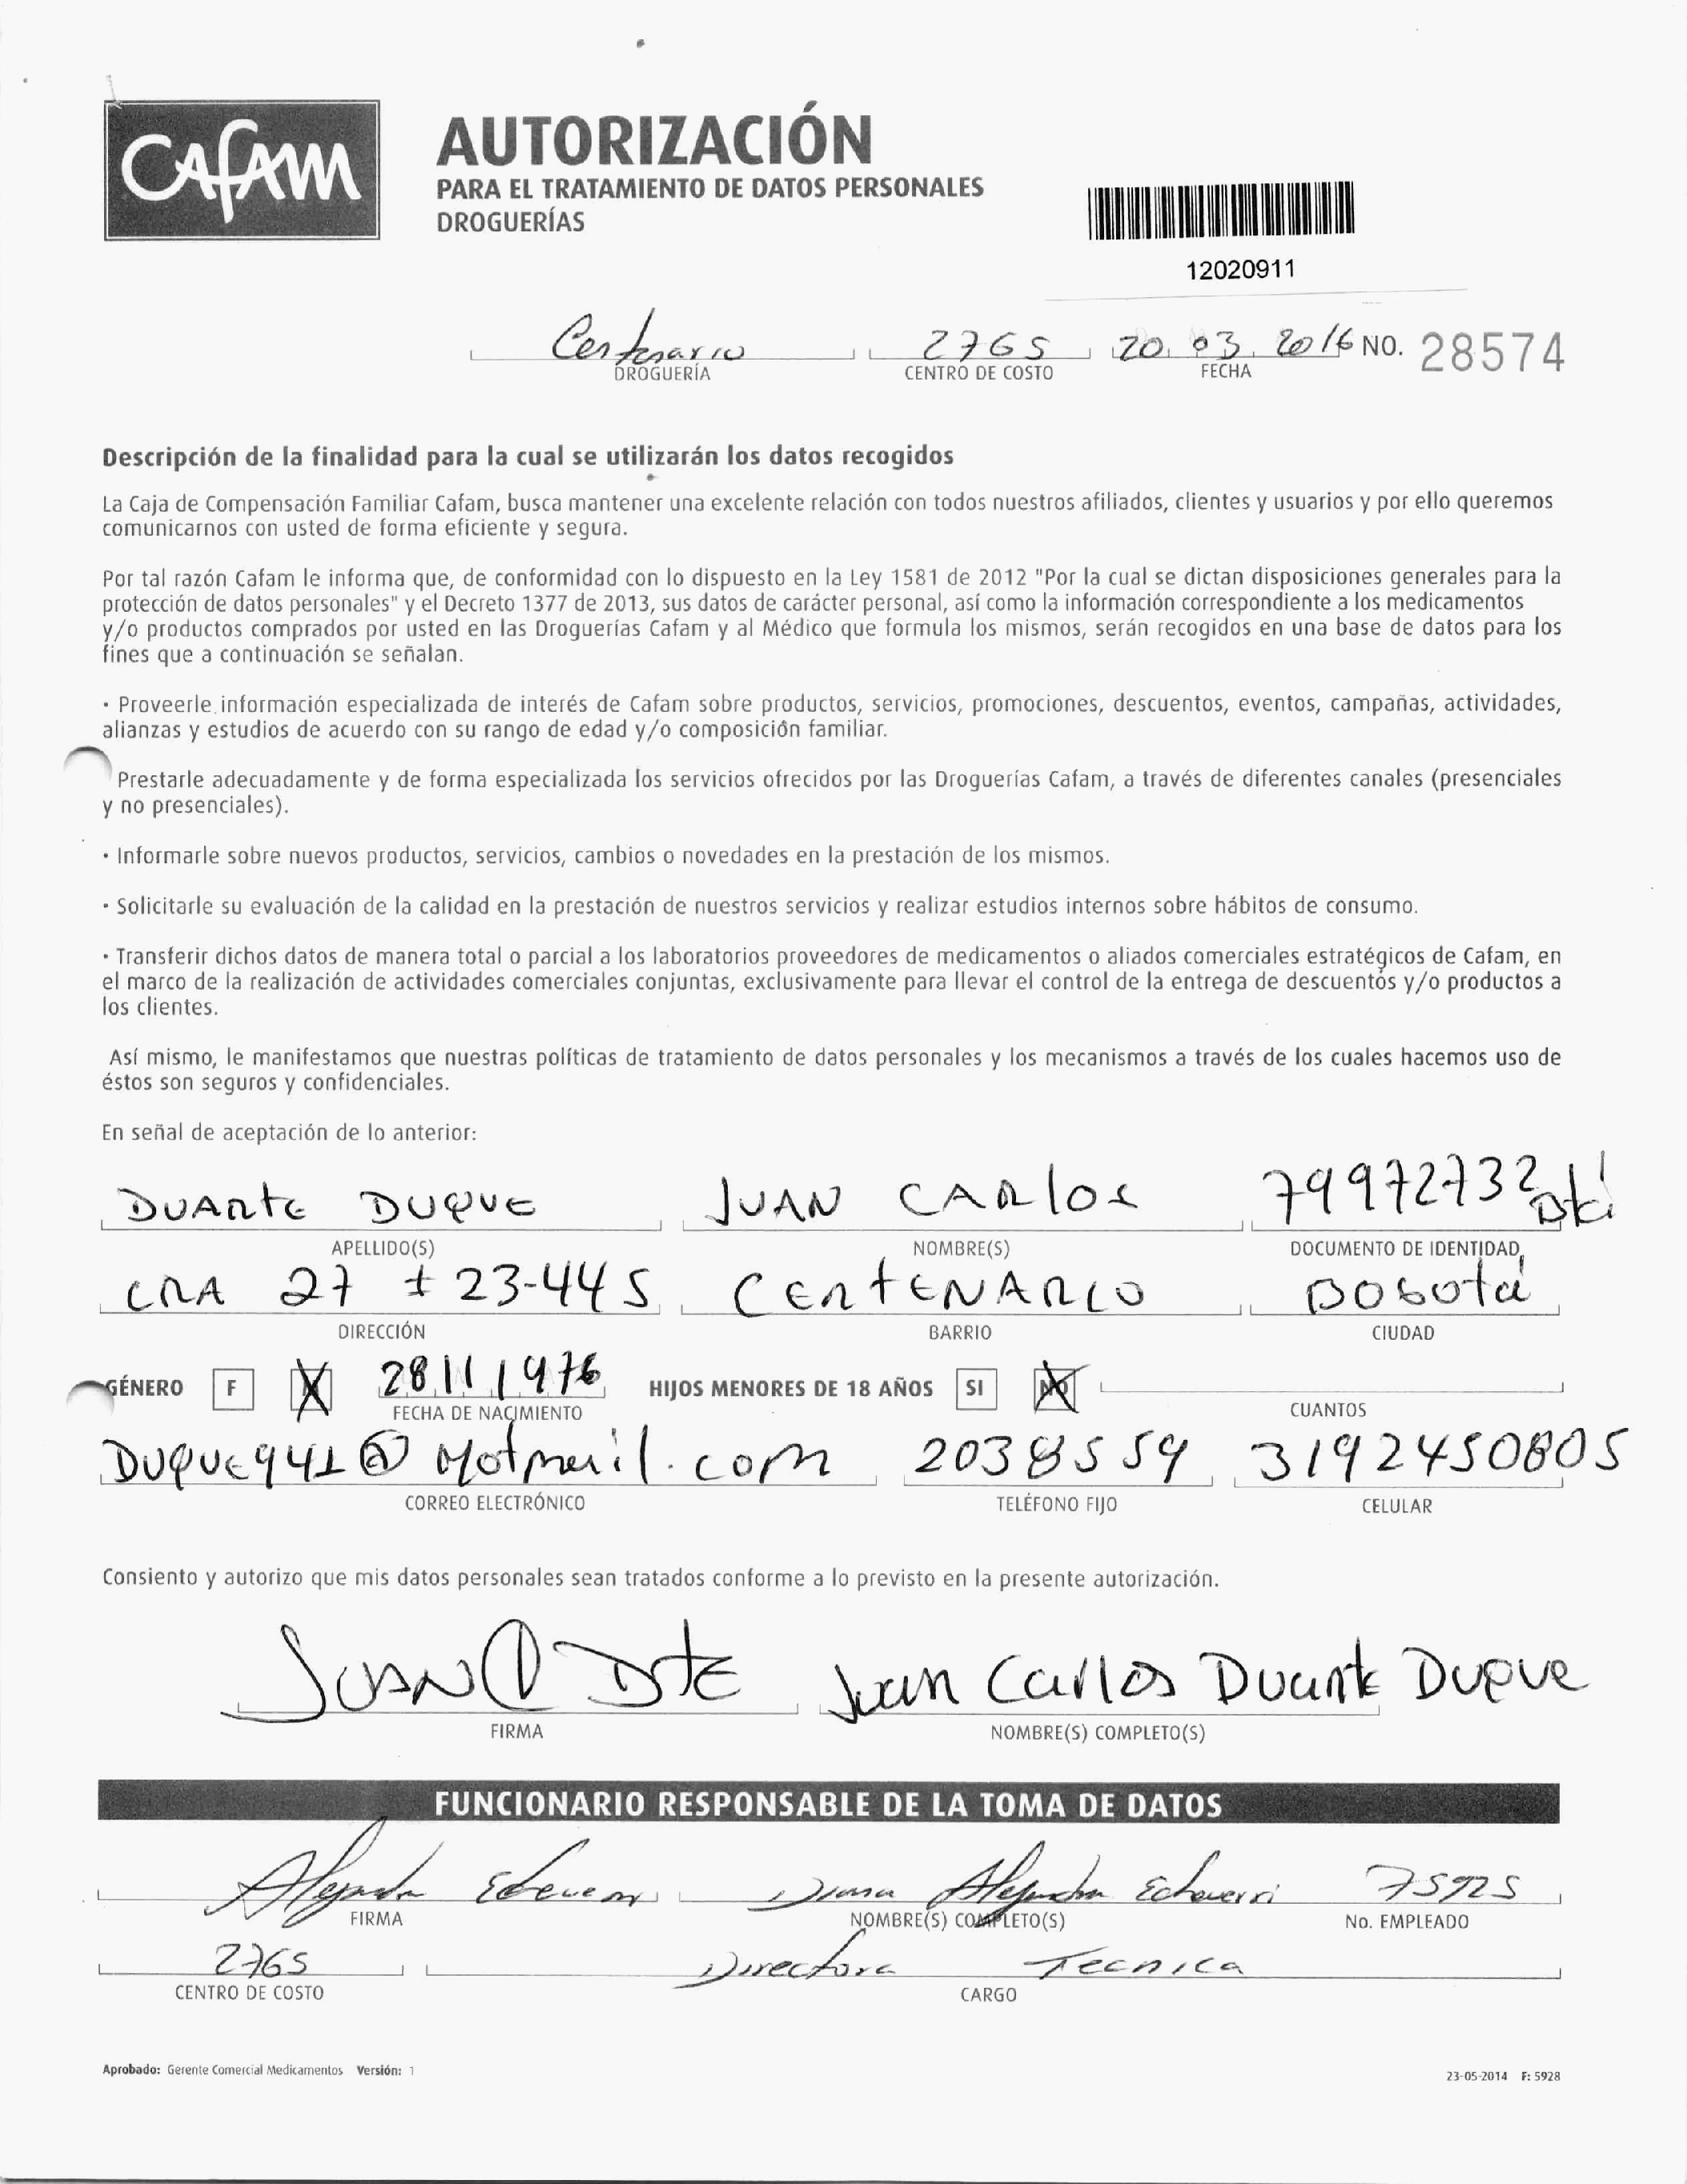 CAFAM
AUTORIZACIÓN
PARA EL TRATAMIENTO DE DATOS PERSONALES
DROGUERÍAS
12020911
Centenario 2765 20 03 2016 NO. 28574
DROGUERÍA CENTRO DE COSTO FECHA
Descripción de la finalidad para la cual se utilizarán los datos recogidos
La Caja de Compensación Familiar Cafam, busca mantener una excelente relación con todos nuestros afiliados, clientes y usuarios y por ello queremos
comunicarnos con usted de forma eficiente y segura.
Por tal razón Cafam le informa que, de conformidad con lo dispuesto en la Ley 1581 de 2012 "Por la cual se dictan disposiciones generales para la
protección de datos personales" y el Decreto 1377 de 2013, sus datos de carácter personal, así como la información correspondiente a los medicamentos
y/o productos comprados por usted en las Droguerías Cafam y al Médico que formula los mismos, serán recogidos en una base de datos para los
fines que a continuación se señalan.
· Proveerle información especializada de interés de Cafam sobre productos, servicios, promociones, descuentos, eventos, campañas, actividades,
alianzas y estudios de acuerdo con su rango de edad y/o composición familiar.
Prestarle adecuadamente y de forma especializada los servicios ofrecidos por las Droguerías Cafam, a través de diferentes canales (presenciales
y no presenciales).
· Informarle sobre nuevos productos, servicios, cambios o novedades en la prestación de los mismos.
· Solicitarle su evaluación de la calidad en la prestación de nuestros servicios y realizar estudios internos sobre hábitos de consumo.
· Transferir dichos datos de manera total o parcial a los laboratorios proveedores de medicamentos o aliados comerciales estratégicos de Cafam, en
el marco de la realización de actividades comerciales conjuntas, exclusivamente para llevar el control de la entrega de descuentos y/o productos a
los clientes.
Así mismo, le manifestamos que nuestras políticas de tratamiento de datos personales y los mecanismos a través de los cuales hacemos uso de
éstos son seguros y confidenciales.
En señal de aceptación de lo anterior:
DUARTE DUQUE JUAN CARLOS 79972732 Bta
APELLIDO(S) NOMBRE(S) DOCUMENTO DE IDENTIDAD
CRA 27 # 23-44 S CENTENARIO BOGOTÁ
DIRECCIÓN BARRIO CIUDAD
GÉNERO F M 28 11 1976 HIJOS MENORES DE 18 AÑOS SI NO
FECHA DE NACIMIENTO CUANTOS
Duque941@Hotmail.com 2038559 3192450805
CORREO ELECTRÓNICO TELÉFONO FIJO CELULAR
Consiento y autorizo que mis datos personales sean tratados conforme a lo previsto en la presente autorización.
JUAN C DTE Juan Carlos Duarte Duque
FIRMA NOMBRE(S) COMPLETO(S)
FUNCIONARIO RESPONSABLE DE LA TOMA DE DATOS
Alejandra Echeverri Diana Alejandra Echeverri 75925
FIRMA NOMBRE(S) COMPLETO(S) No. EMPLEADO
2765 Directora Tecnica
CENTRO DE COSTO CARGO
Aprobado: Gerente Comercial Medicamentos Versión: 1
23-05-2014 F: 5928